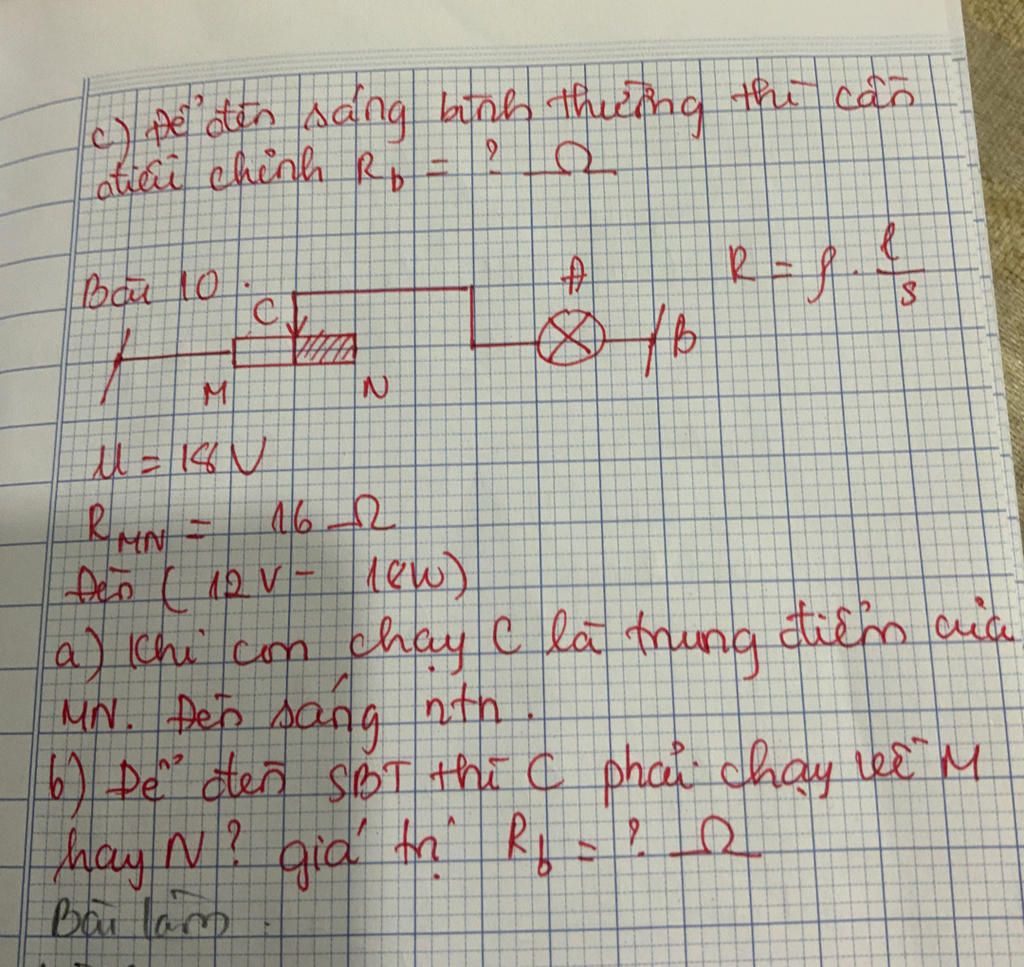 c) Để đèn sáng bình thường thì cần
điều chỉnh Rb = ? Ω
Bài 10.
R = ρ . l/s
C
A
B
M
N
U = 18V
RMN = 16 Ω
Đèn ( 12V - 18W)
a) Khi con chạy C là trung điểm của
MN. Đèn sáng ntn.
b) Để đèn SBT thì C phải chạy về M
hay N? giá trị Rb = ? Ω
Bài làm.